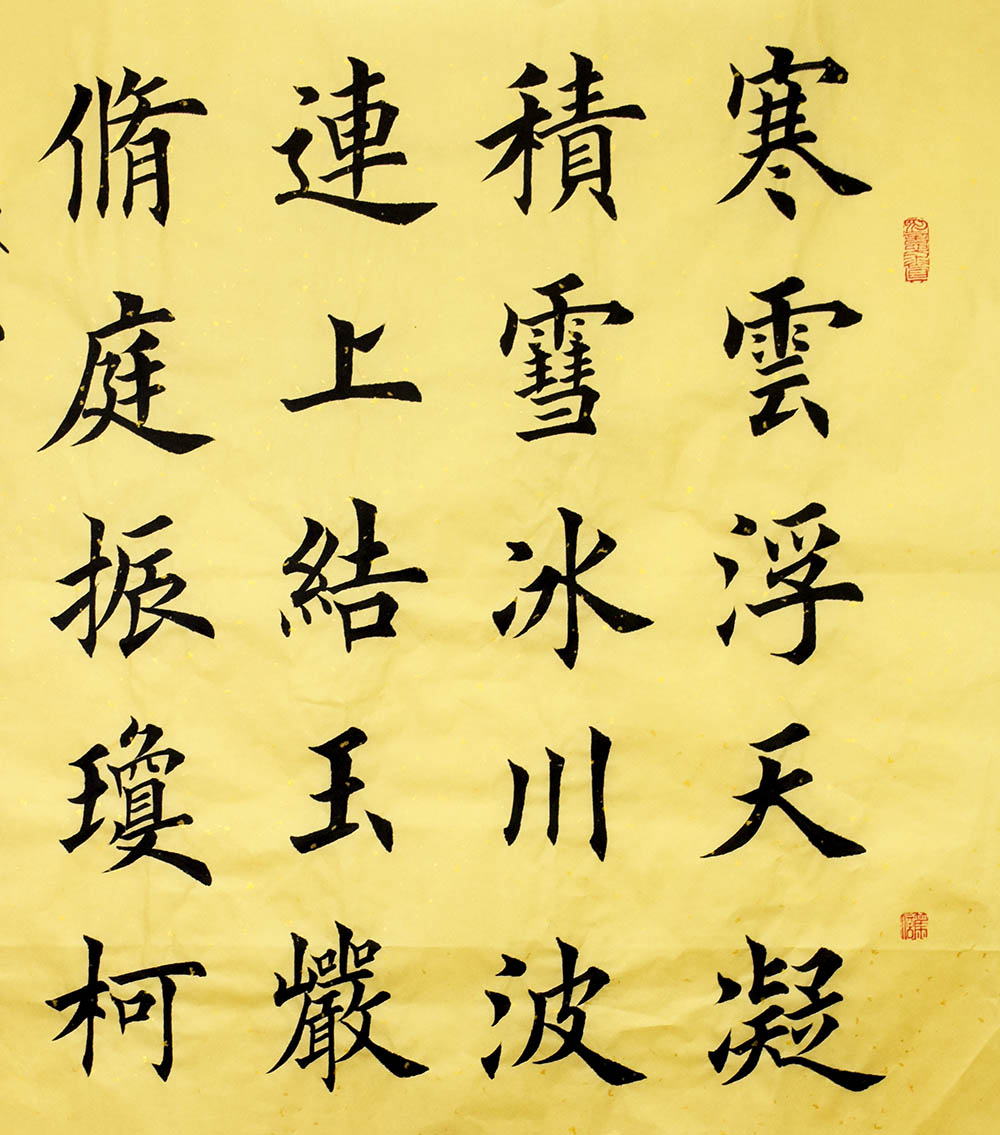 寒雲浮天凝
積雪冰川波
連上結玉巖
脩庭振瓊柯